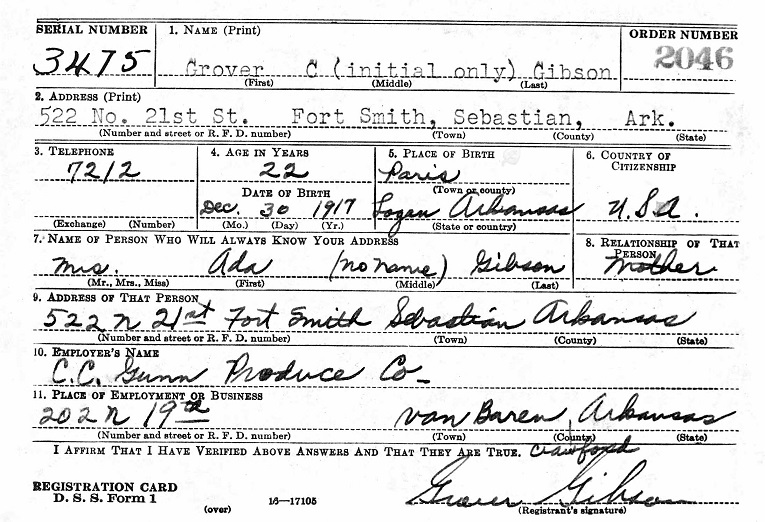 SERIAL NUMBER 1. NAME (Print) ORDER NUMBER
3475 Grover C (initial only) Gibson 2046
(First) (Middle) (Last)
2. ADDRESS (Print)
522 No. 21st St. Fort Smith, Sebastian, Ark.
(Number and street or R. F. D. number) (Town) (County) (State)
3. TELEPHONE 4. AGE IN YEARS 5. PLACE OF BIRTH 6. COUNTRY OF CITIZENSHIP
7212 22 Paris
DATE OF BIRTH (Town or county)
Dec. 30 1917 Logan Arkansas U.S.A.
(Exchange) (Number) (Mo.) (Day) (Yr.) (State or country)
7. NAME OF PERSON WHO WILL ALWAYS KNOW YOUR ADDRESS 8. RELATIONSHIP OF THAT PERSON
Mrs. Ada (no name) Gibson Mother
(Mr., Mrs., Miss) (First) (Middle) (Last)
9. ADDRESS OF THAT PERSON
522 N 21st Fort Smith Sebastian Arkansas
(Number and street or R. F. D. number) (Town) (County) (State)
10. EMPLOYER'S NAME
C.C. Gunn Produce Co-
11. PLACE OF EMPLOYMENT OR BUSINESS
202 N 19th Van Buren, Arkansas
(Number and street or R. F. D. number) (Town) (County) (State)
I AFFIRM THAT I HAVE VERIFIED ABOVE ANSWERS AND THAT THEY ARE TRUE. Crawford
REGISTRATION CARD Grover Gibson
D. S. S. Form 1 (over) 16—17105 (Registrant's signature)